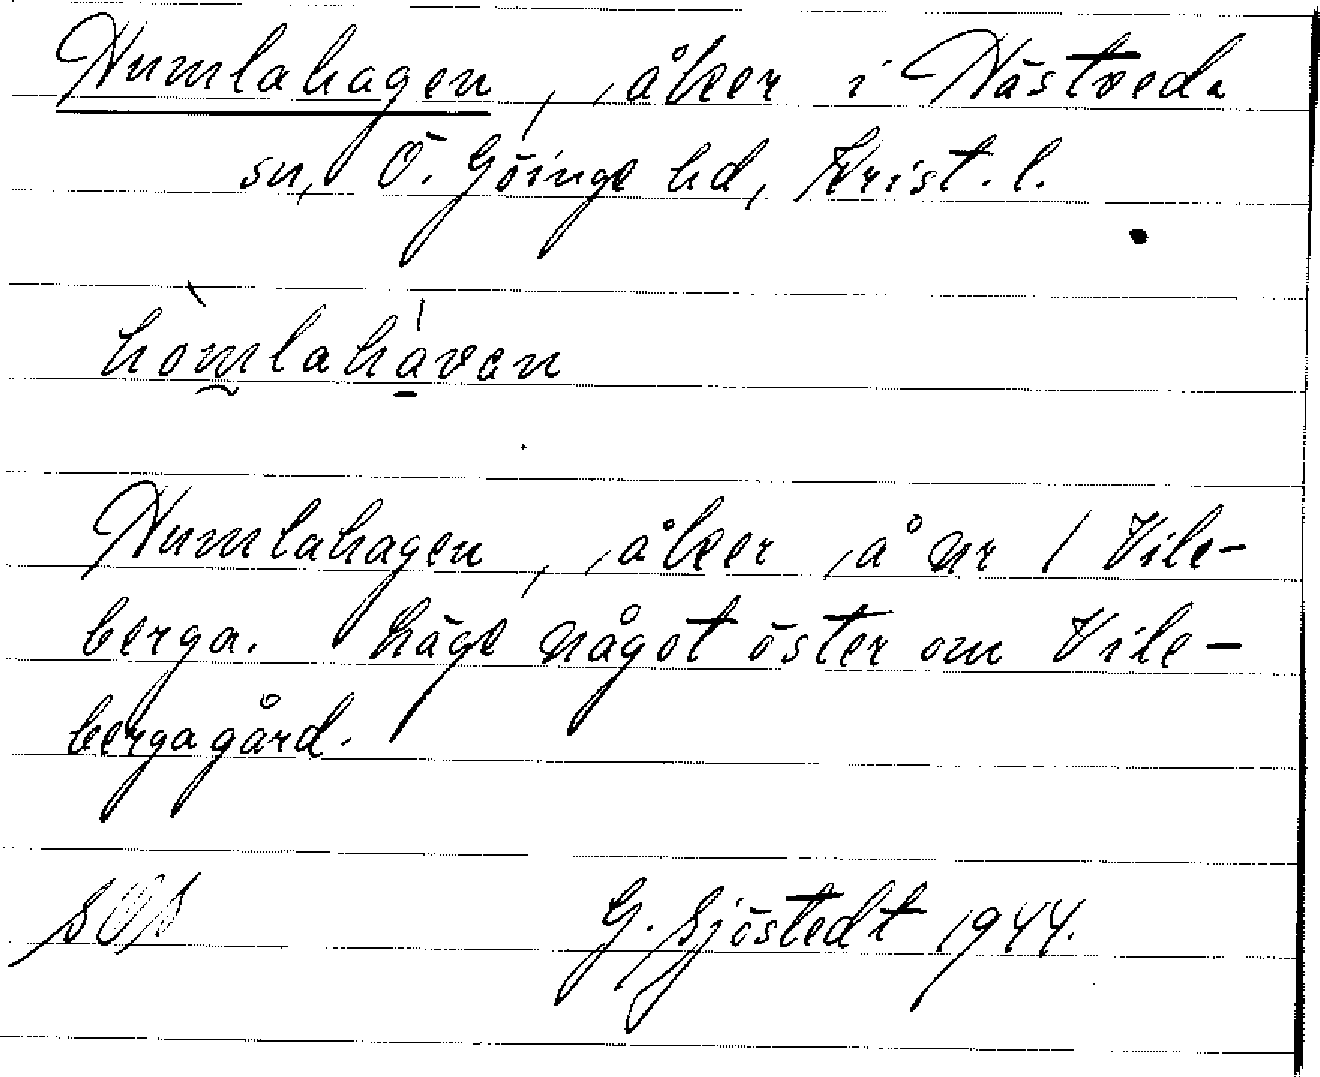 Humlahagen, åker i Hästveda
sn, Ö. Göinge hd, Krist. l.
hòmlahávan
Humlahagen, åker å nr 1 Vile-
berga. Läge något öster om Vile-
bergagård.
G. Sjöstedt 1944.